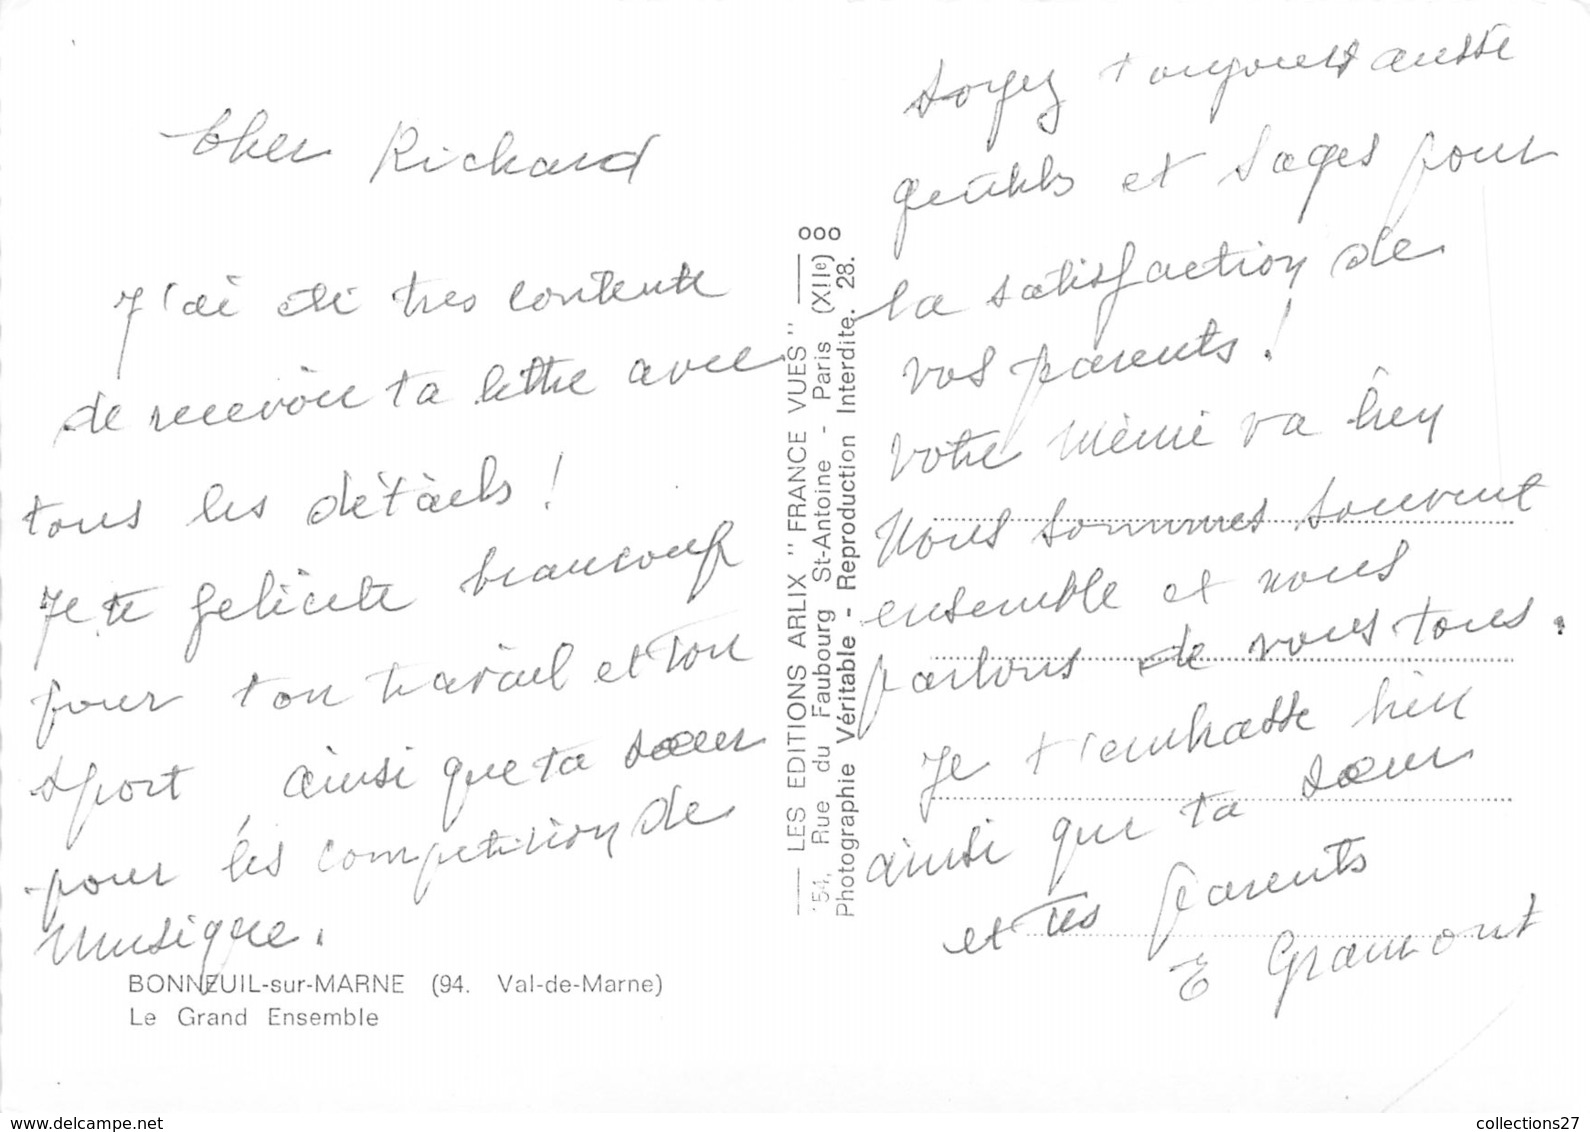 Cher Richard
J'ai été très contente
de recevoir ta lettre avec
tous les détails !
Je te félicite beaucoup
pour ton travail et ton
sport, ainsi que ta sœur
pour les compétition de
musique.
BONNEUIL-sur-MARNE (94. Val-de-Marne)
Le Grand Ensemble
LES EDITIONS ARLIX " FRANCE VUES " ooo
54, Rue du Faubourg St-Antoine - Paris (XIIe)
Photographie Véritable - Reproduction Interdite. 28.
Soyez toujours aussi
gentils et sages pour
la satisfaction de
vos parents !
Votre Mémé va bien
Nous sommes souvent
ensemble et nous
parlons de vous tous.
Je t'embrasse bien
ainsi que ta sœur
et tes parents
E Gramont
www.delcampe.net
collections27